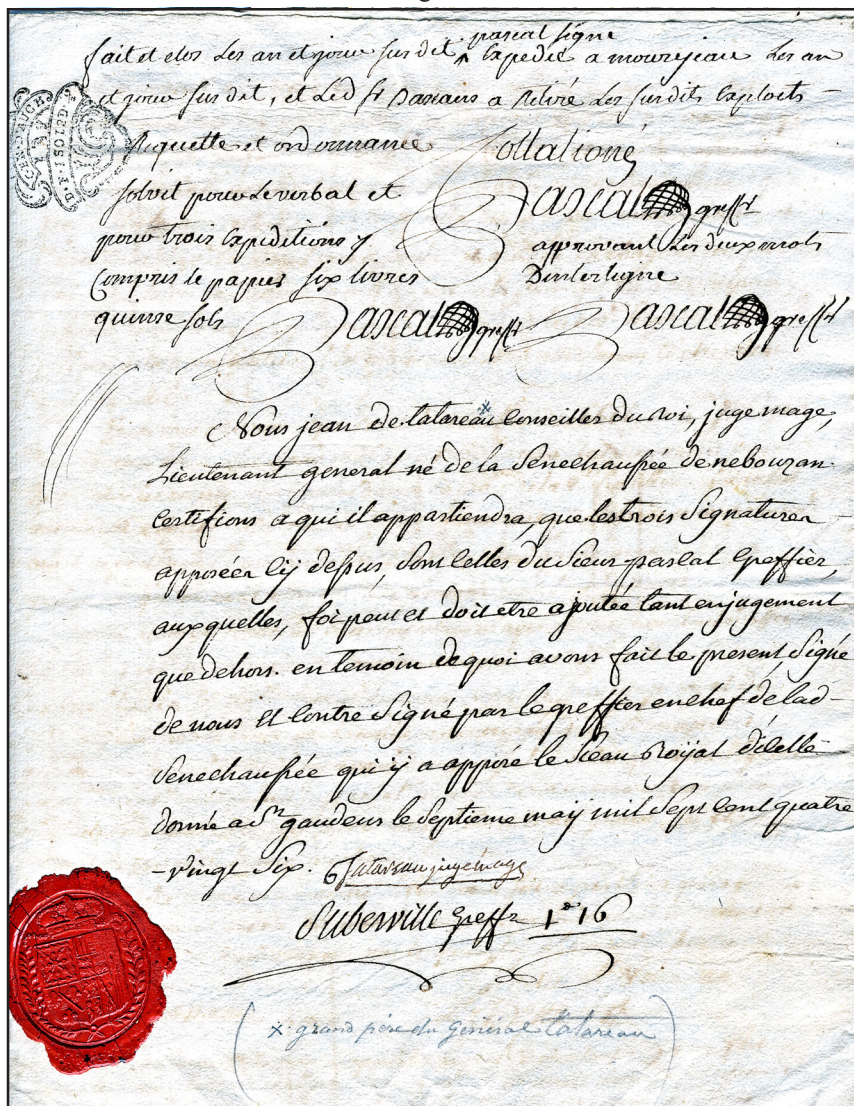 pascal signé
fait et clos les an et jour susdit ^ expedié a mourejeau les an
et jour susdit, et led sr Dassains a retiré les susdits exploits
Requette et ordonnance
Collationé
soloit pour le verbal et
Pascal greffr
pour trois expeditions y
approuvant les deux mots
compris le papier six livres
Dinterligne
quinse sols
Pascal greffr
Pascal greffr
Nous jean de tatareau × conseiller du roi, juge mage,
Lieutenant general né de la Senechaussée de nebouzan
certifions a qui il appartiendra, que les trois Signatures
apposées cy dessus, sont celles du Sieur pascal greffier,
auxquelles, foi peut et doit etre ajoutée tant en jugement
que dehors. en temoin de quoi avons fait le present, Signé
de nous et contre Signé par le greffier en chef de lad
Senechaussée qui y a apposé le Sceau Royal d'icelle
donné a St gaudens le Septieme maÿ mil Sept cent quatre
-vingt Six. Tatareau juge mage
Suberville greffr 1# 16
(× grand père du Général tatareau)